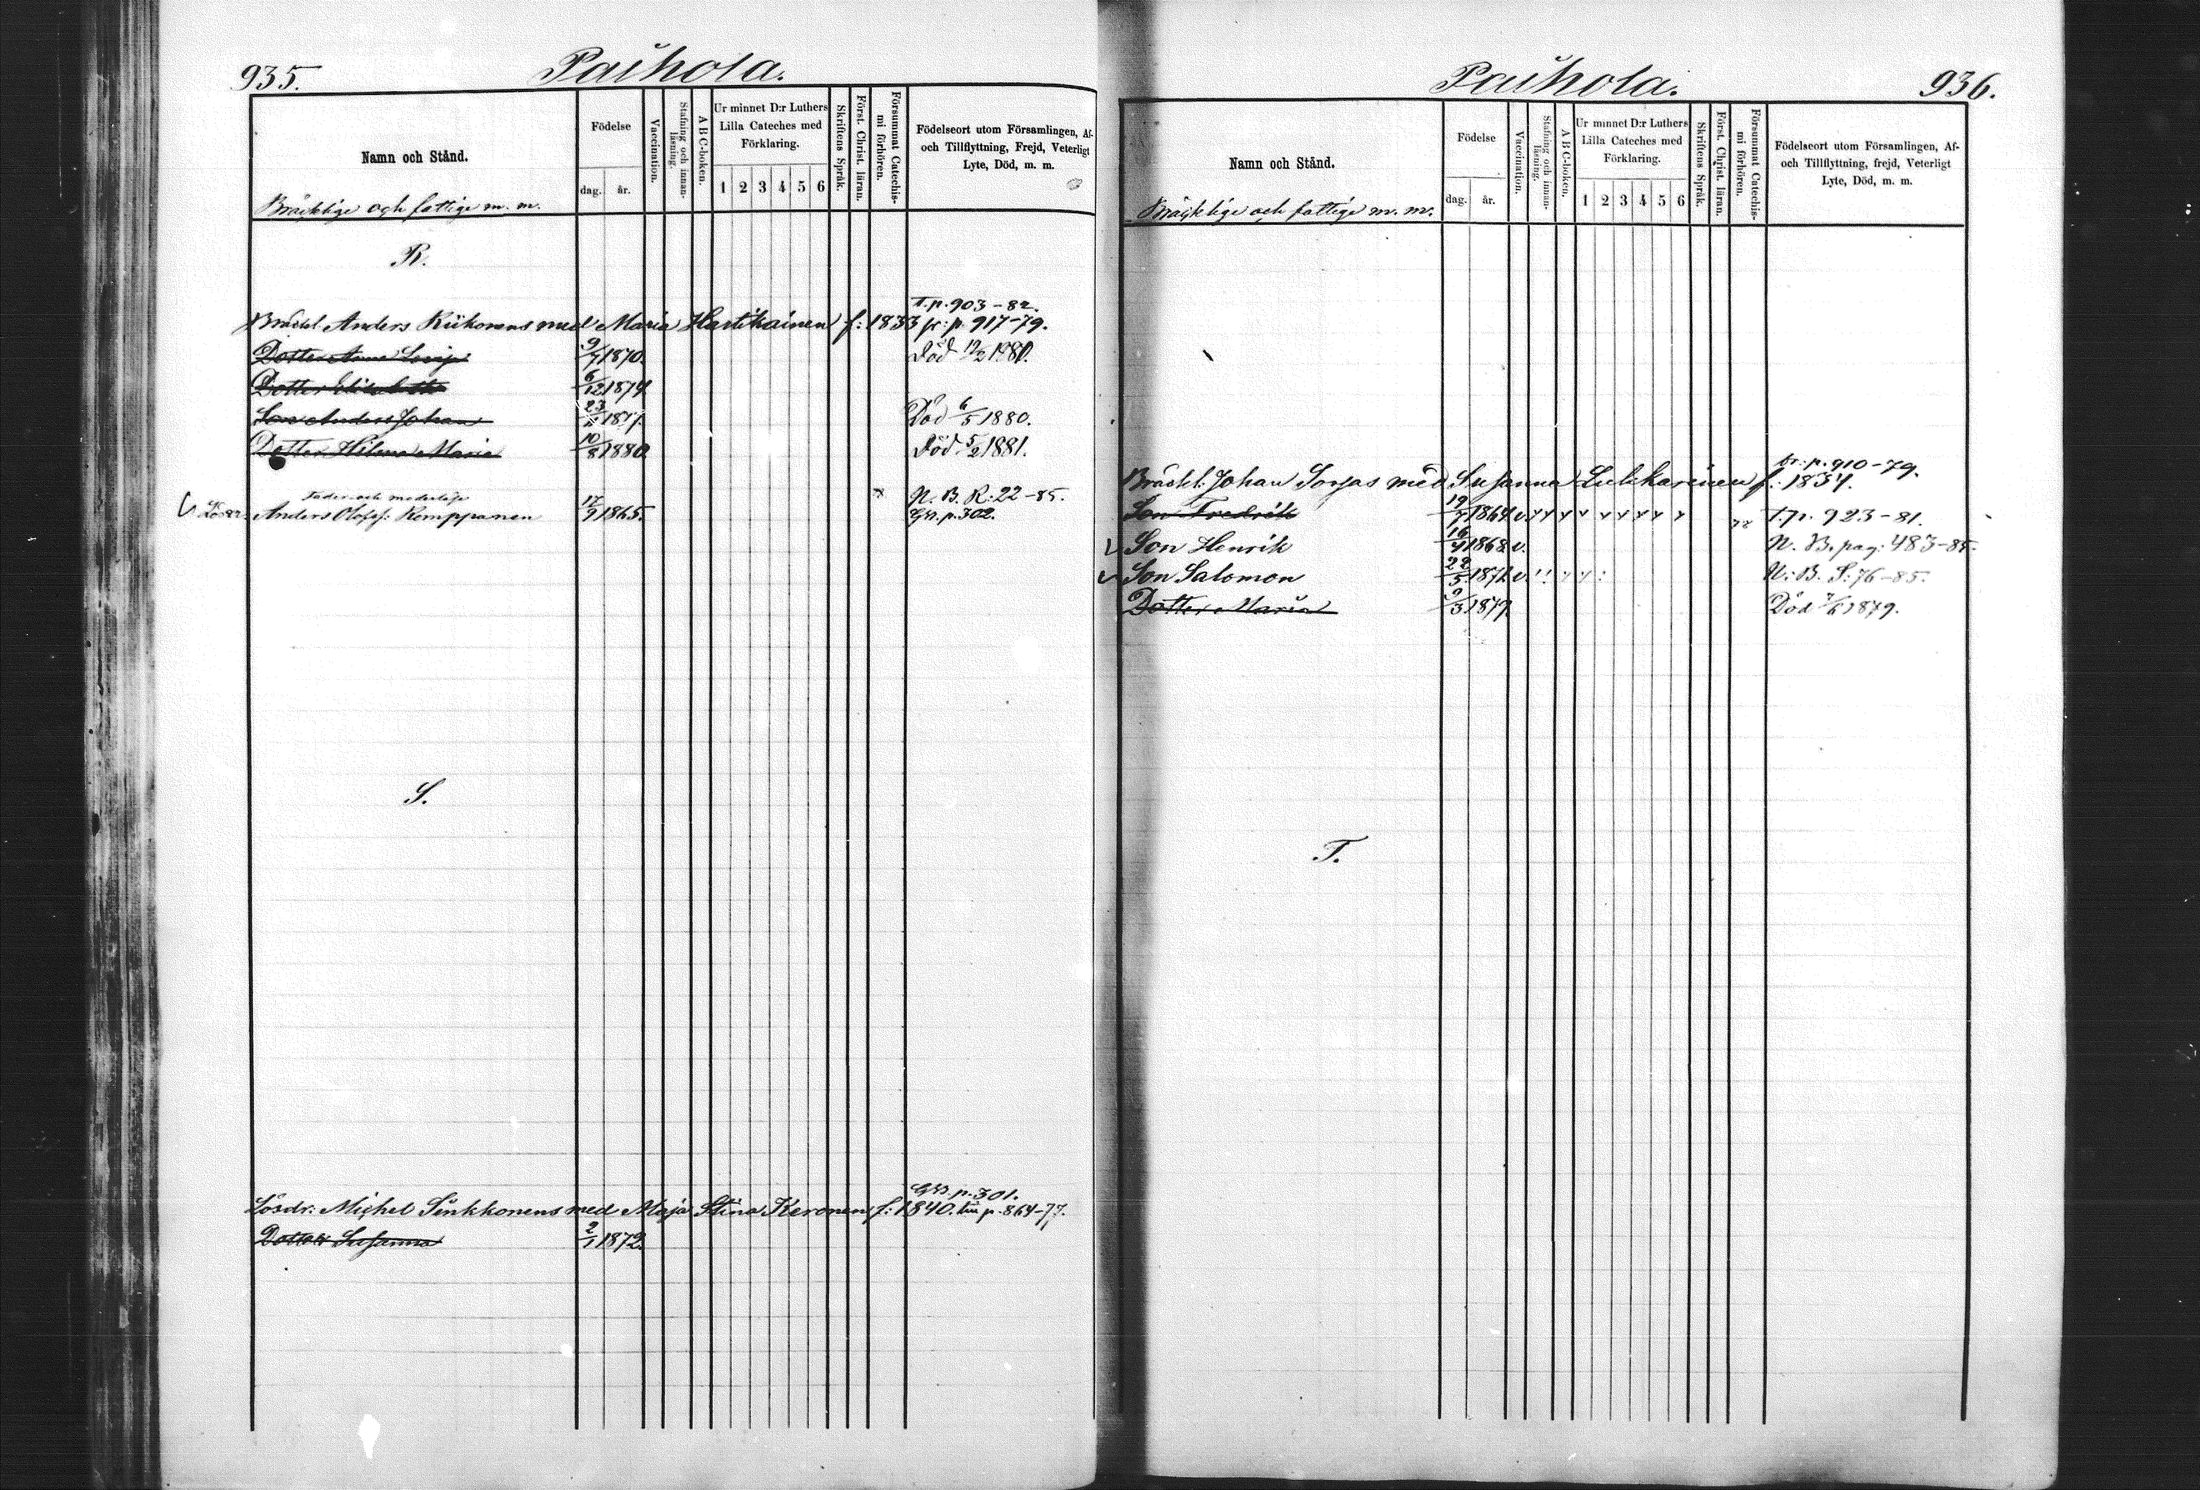 935.
Paihola.
Namn och Stånd.
Bräcklige och fattige m. m.
Födelse
dag.
år.
Vaccination.
Stafning och innan-
läsning.
A B C-boken.
Ur minnet D:r Luthers
Lilla Cateches med
Förklaring.
1 2 3 4 5 6
Skriftens Språk.
Först. Christ. läran.
Försummat Catechis-
mi förhören.
Födelseort utom Församlingen, Af-
och Tillflyttning, Frejd, Veterligt
Lyte, Död, m. m.
R.
T. p. 903-82.
Bräckl. Anders Riikonens med Maria Hartikainen f: 1833 fr: p. 917-79.
Dotter Anna 9/7 1870. Död 12/2 1881.
Dotter Elisabeth 6/12 1874
Son Anders Johan 23/ 187 Död 6/5 1880.
Dotter Helena Maria 10/8 1880 Död 5/2 1881.
Fader och moderlöse N. B. R. 22-85.
Anders Olofss: Romppanen 17/9 1865. p. 302.
S.
p. 301.
Lösdr: Michel Sinkkonens med Maja Stina Keronen f: 1840. p. 864-77.
Dotter Susanna 2/1 1872.
Paihola.
936.
Namn och Stånd.
Bräcklige och fattige m. m.
Födelse
dag.
år.
Vaccination.
Stafning och innan-
läsning.
A B C-boken.
Ur minnet D:r Luthers
Lilla Cateches med
Förklaring.
1 2 3 4 5 6
Skriftens Språk.
Först. Christ. läran.
Försummat Catechis-
mi förhören.
Födelseort utom Församlingen, Af-
och Tillflyttning, frejd, Veterligt
Lyte, Död, m. m.
fr: p. 910-79.
Bräckl: Johan Sorsas med Susanna f. 1834.
Son Fredrik 19/7 1864 v. T. p. 923-81.
Son Henrik 16/4 1868 v. N. B. pag: 483-85.
Son Salomon 22/5 1872 v. N. B. S: 76-85.
Dotter Maria 9/3 1879 Död 7/6 1879.
T.